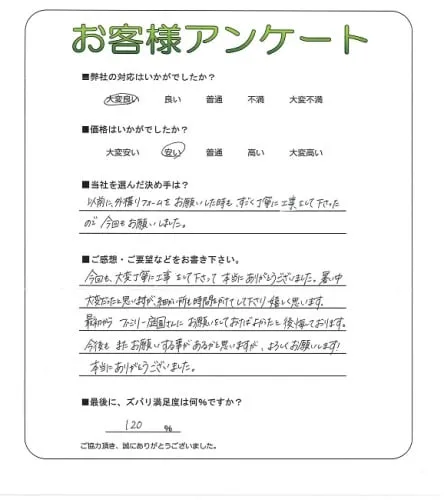 お客様アンケート
■弊社の対応はいかがでしたか？
大変良い 良い 普通 不満 大変不満
■価格はいかがでしたか？
大変安い 安い 普通 高い 大変高い
■当社を選んだ決め手は？
以前に、外構リフォームをお願いした時も、すごく丁寧に工事をして下さった
ので今回もお願いしました。
■ご感想・ご要望などをお書き下さい。
今回も、大変丁寧に工事をして下さって本当にありがとうございました。暑い中
大変だったと思いますが、細かい所も時間をかけてして下さり嬉しく思います。
最初からファミリー庭園さんにお願いをしておけばよかったと後悔しております。
今後もまたお願いする事があるかと思いますが、よろしくお願いします!
本当にありがとうございました。
■最後に、ズバリ満足度は何％ですか？
120 %
ご協力頂き、誠にありがとうございました。